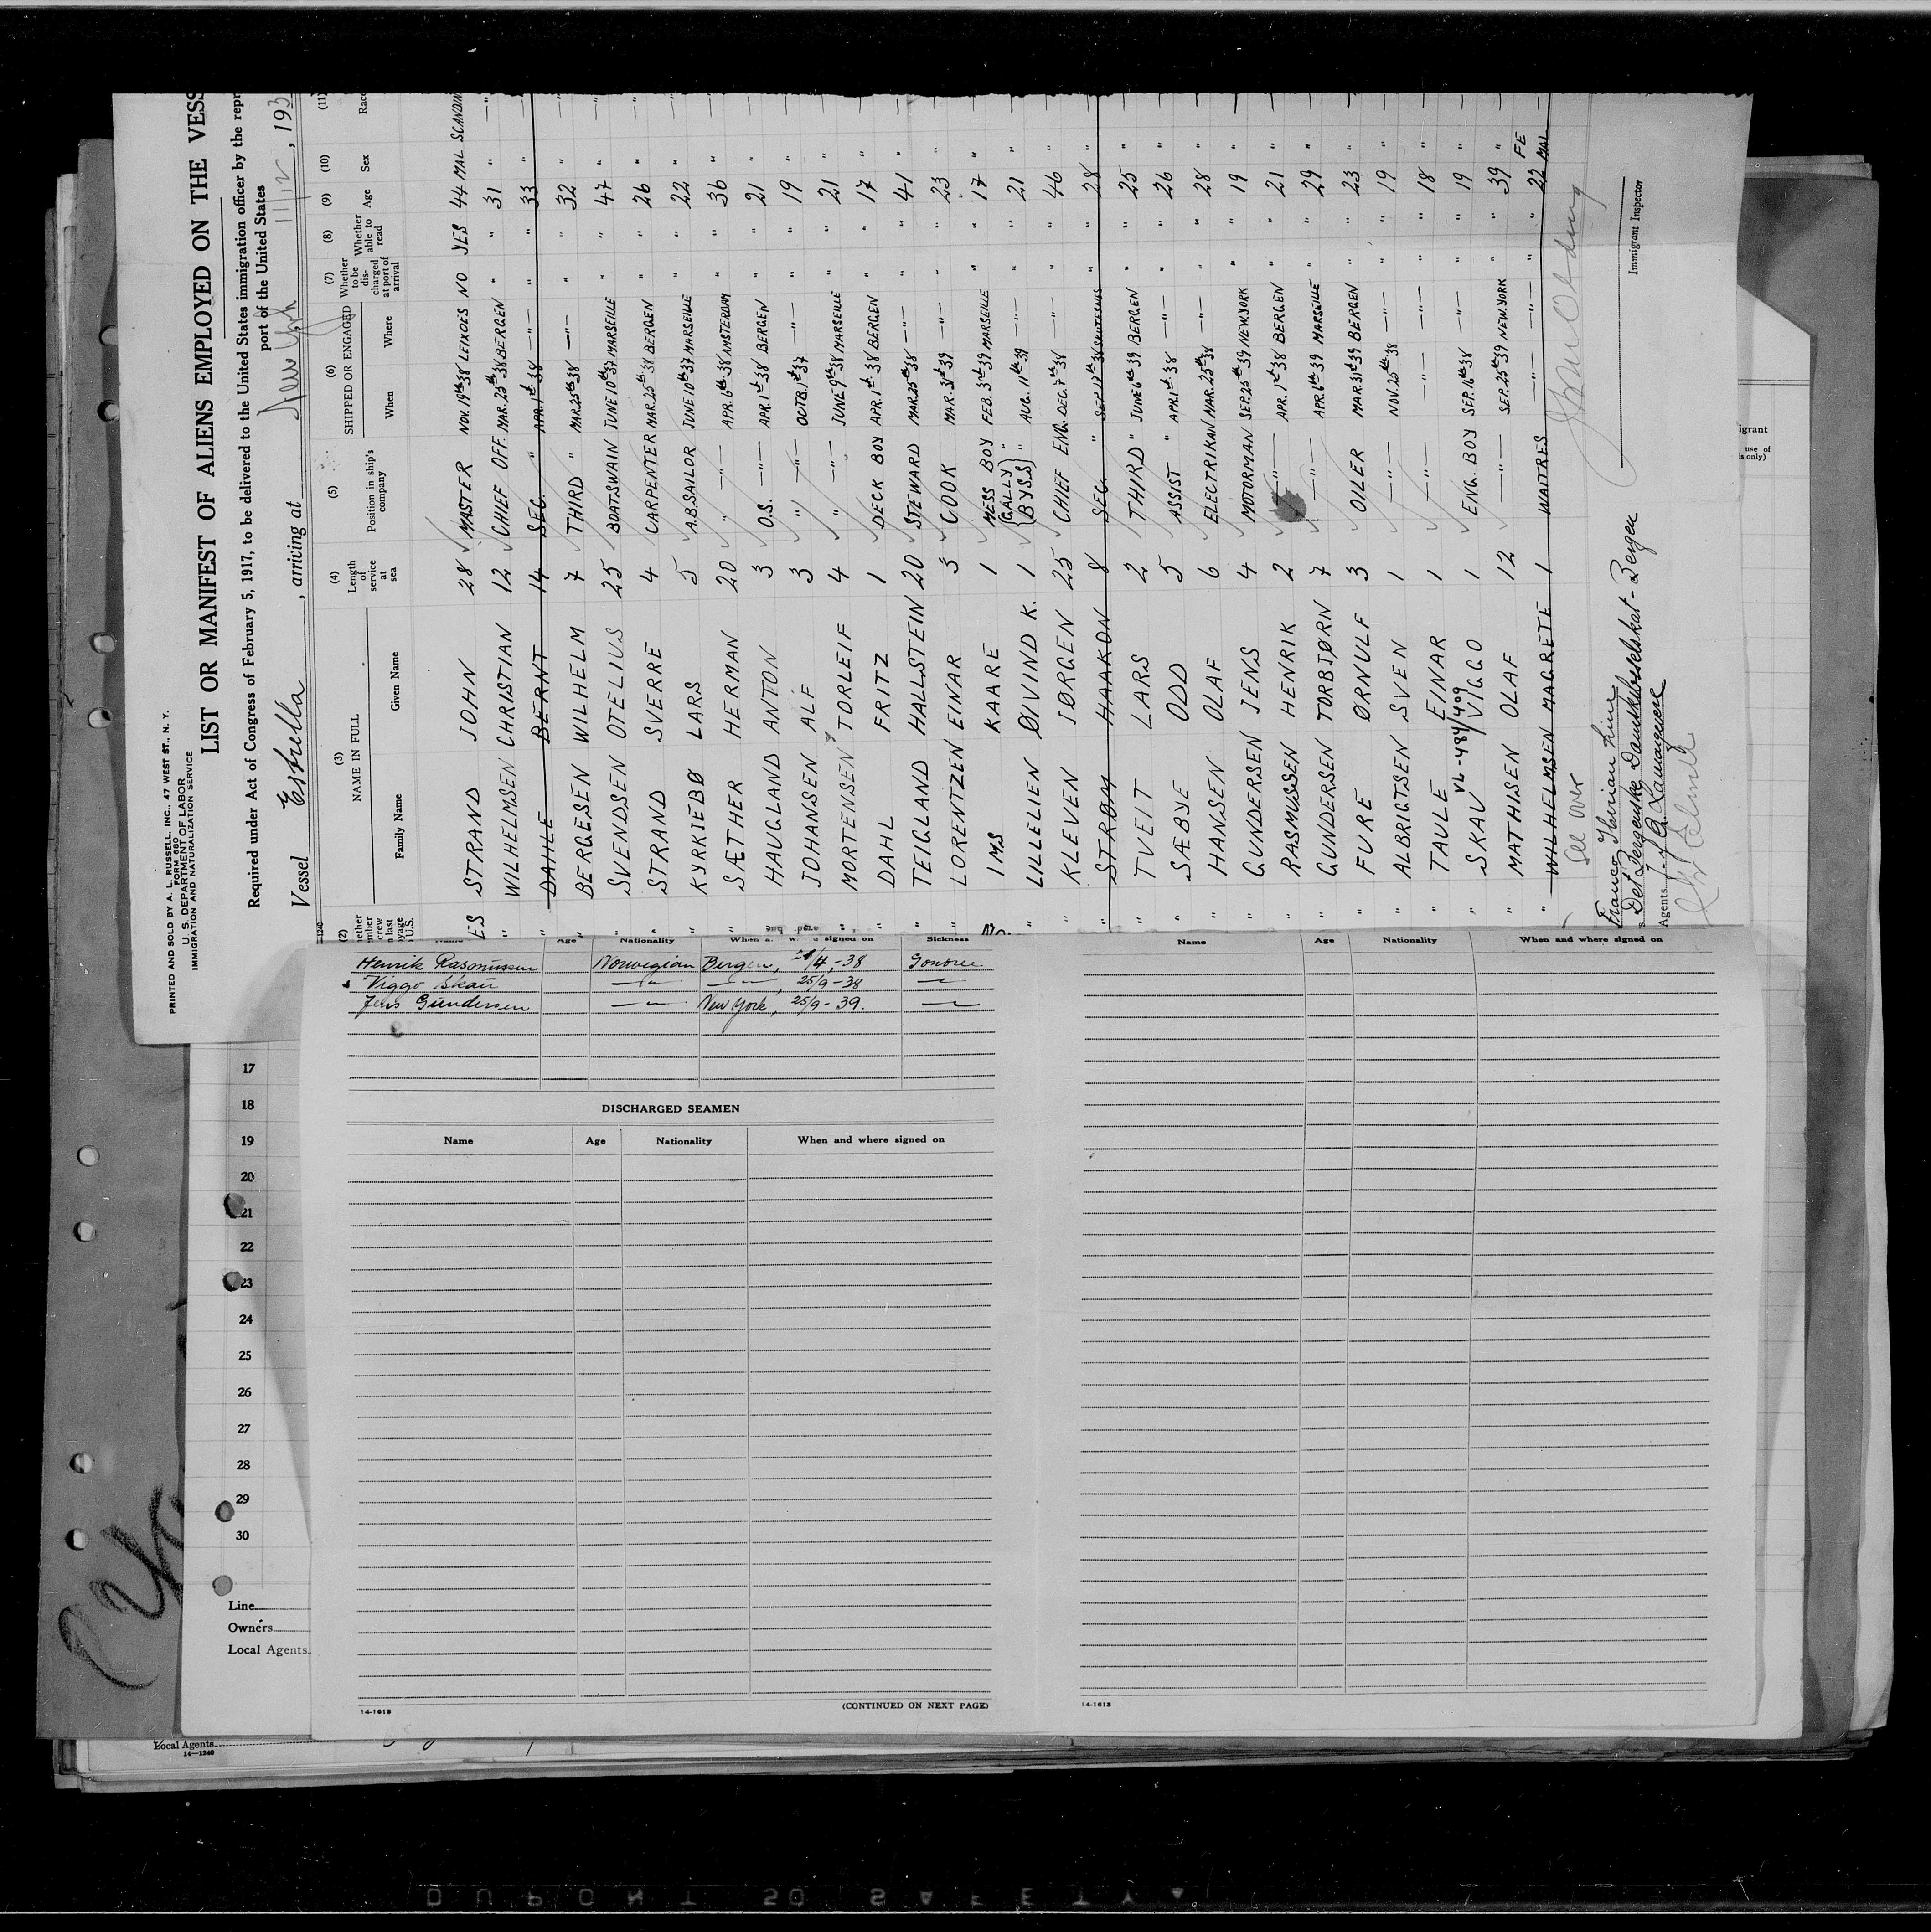 PRINTED AND SOLD BY A. L. RUSSELL, INC., 47 WEST ST., N. Y.
FORM 680
U. S. DEPARTMENT OF LABOR
IMMIGRATION AND NATURALIZATION SERVICE
LIST OR MANIFEST OF ALIENS EMPLOYED ON THE VESS
Required under Act of Congress of February 5, 1917, to be delivered to the United States immigration officer by the repr
port of the United States
Vessel Estrella, arriving at New York 11/12, 193
(2) (3) (4) (5) (6) (7) (8) (9) (10) (11)
NAME IN FULL Length of service at sea Position in ship's company SHIPPED OR ENGAGED Whether to be discharged at port of arrival Whether able to read Age Sex Race
Family Name Given Name When Where
ES STRAND JOHN 28 MASTER NOV. 19th 38 LEIXOES NO YES 44 MAL SCANDIN
" WILHELMSEN CHRISTIAN 12 CHIEF OFF. MAR. 25th 38 BERGEN " " 31 " —"
DAHLE BERNT 14 SEC. " APR. 1st 38 —"— " " 33 "
BERGESEN WILHELM 7 THIRD " MAR. 25th 38 —"— " " 32 " —"
SVENDSEN OTELIUS 25 BOATSWAIN JUNE 10th 37 MARSEILLE " " 47 " —"
STRAND SVERRE 4 CARPENTER MAR. 25th 38 BERGEN " " 26 " —"
KYRKJEBØ LARS 5 A.B. SAILOR JUNE 10th 37 MARSEILLE " " 22 " —"
SÆTHER HERMAN 20 " —"— APR. 6th 38 AMSTERDAM " " 36 " —"
HAUGLAND ANTON 3 O.S. —"— APR. 1st 38 BERGEN " " 21 " —"
JOHANSEN ALF 3 " —"— OCTB. 1st 37 —"— " " 19 " —"
MORTENSEN TORLEIF 4 " —"— JUNE 9th 38 MARSEILLE " " 21 " —"
" DAHL FRITZ 1 DECK BOY APR. 1st 38 BERGEN " " 17 " —"
TEIGLAND HALLSTEIN 20 STEWARD MAR. 25th 38 —"— " " 41 "
" LORENTZEN EINAR 3 COOK MAR. 31st 39 —"— " " 23 "
No. IMS KAARE 1 MESS BOY FEB. 3rd 39 MARSEILLE " " 17 "
" LILLELIEN ØIVIND K. 1 {GALLY BYSS} " AUG. 11th 39 —"— " " 21 "
" KLEVEN JØRGEN 25 CHIEF ENG. DEC. 7th 38 —"— " " 46 "
" STRØM HAAKON 8 SEC. " SEP. 17th 38 " " 28 "
" TVEIT LARS 2 THIRD " JUNE 6th 39 BERGEN " " 25 "
" SÆBYE ODD 5 ASSIST " APR. 1st 38 —"— " " 26 "
" HANSEN OLAF 6 ELECTRIKAN MAR. 25th 38 —"— " " 28 "
" GUNDERSEN JENS 4 MOTORMAN SEP. 25th 39 NEW YORK " " 19 "
" RASMUSSEN HENRIK 2 —"— APR. 1st 38 BERGEN " " 21 "
" GUNDERSEN TORBJØRN 7 —"— APR. 6th 39 MARSEILLE " " 29 "
" FURE ØRNULF 3 OILER MAR. 31st 39 BERGEN " " 23 "
" ALBRIGTSEN SVEN 1 —"— NOV. 25th 38 —"— " " 19 "
" TAULE EINAR 1 —"— —"— —"— " " 18 "
VL-484/409
" SKAU VIGGO 1 ENG. BOY SEP. 16th 38 —"— " " 19 "
MATHISEN OLAF 12 —"— SEP. 25th 39 NEW YORK " " 39 "
" WILHELMSEN MAGRETE 1 WAITRES —"— —"— " " 22 FE MAL
See over
Det Bergenske Dampskibsselskab - Bergen
Agents
Immigrant Inspector
Name Age Nationality signed on Sickness
Henrik Rasmussen Norwegian Bergen, 1/4,-38 Gonorre
Viggo Skau —"— —"—, 25/9-38 —"—
Jens Gundersen —"— New York, 25/9-39. —"—
DISCHARGED SEAMEN
Name Age Nationality When and where signed on
(CONTINUED ON NEXT PAGE)
14-1613
Name Age Nationality When and where signed on
14-1613
17
18
19
20
21
22
23
24
25
26
27
28
29
30
Line
Owners
Local Agents
Local Agents
14-1240
igrant
use of
is only)
DUPONT 50 SAFETY